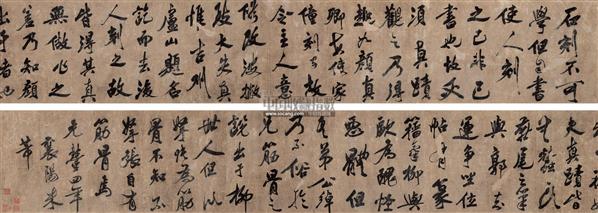 石刻不可
學但自書
使人刻
之已非己
書也故必
須真蹟
觀之乃得
趣如顏真
卿每使家
僮刻字故
會主人意
修改波撇
致大失真
惟吉州
廬山題名
題訖而去後
人刻之故
皆得其真
無做作之
差乃知顏
出于者也
夫真蹟皆
無蠶頭
燕尾之筆
與郭知
運爭坐位
帖有篆
籀氣柳與
歐為醜怪
惡體但
其弟公綽
乃不俗于
兄筋骨之
說出于柳
世人但以
怒張為筋
骨不知不
怒張自有
筋骨焉
元豐四年
襄陽米
芾
www.socang.com